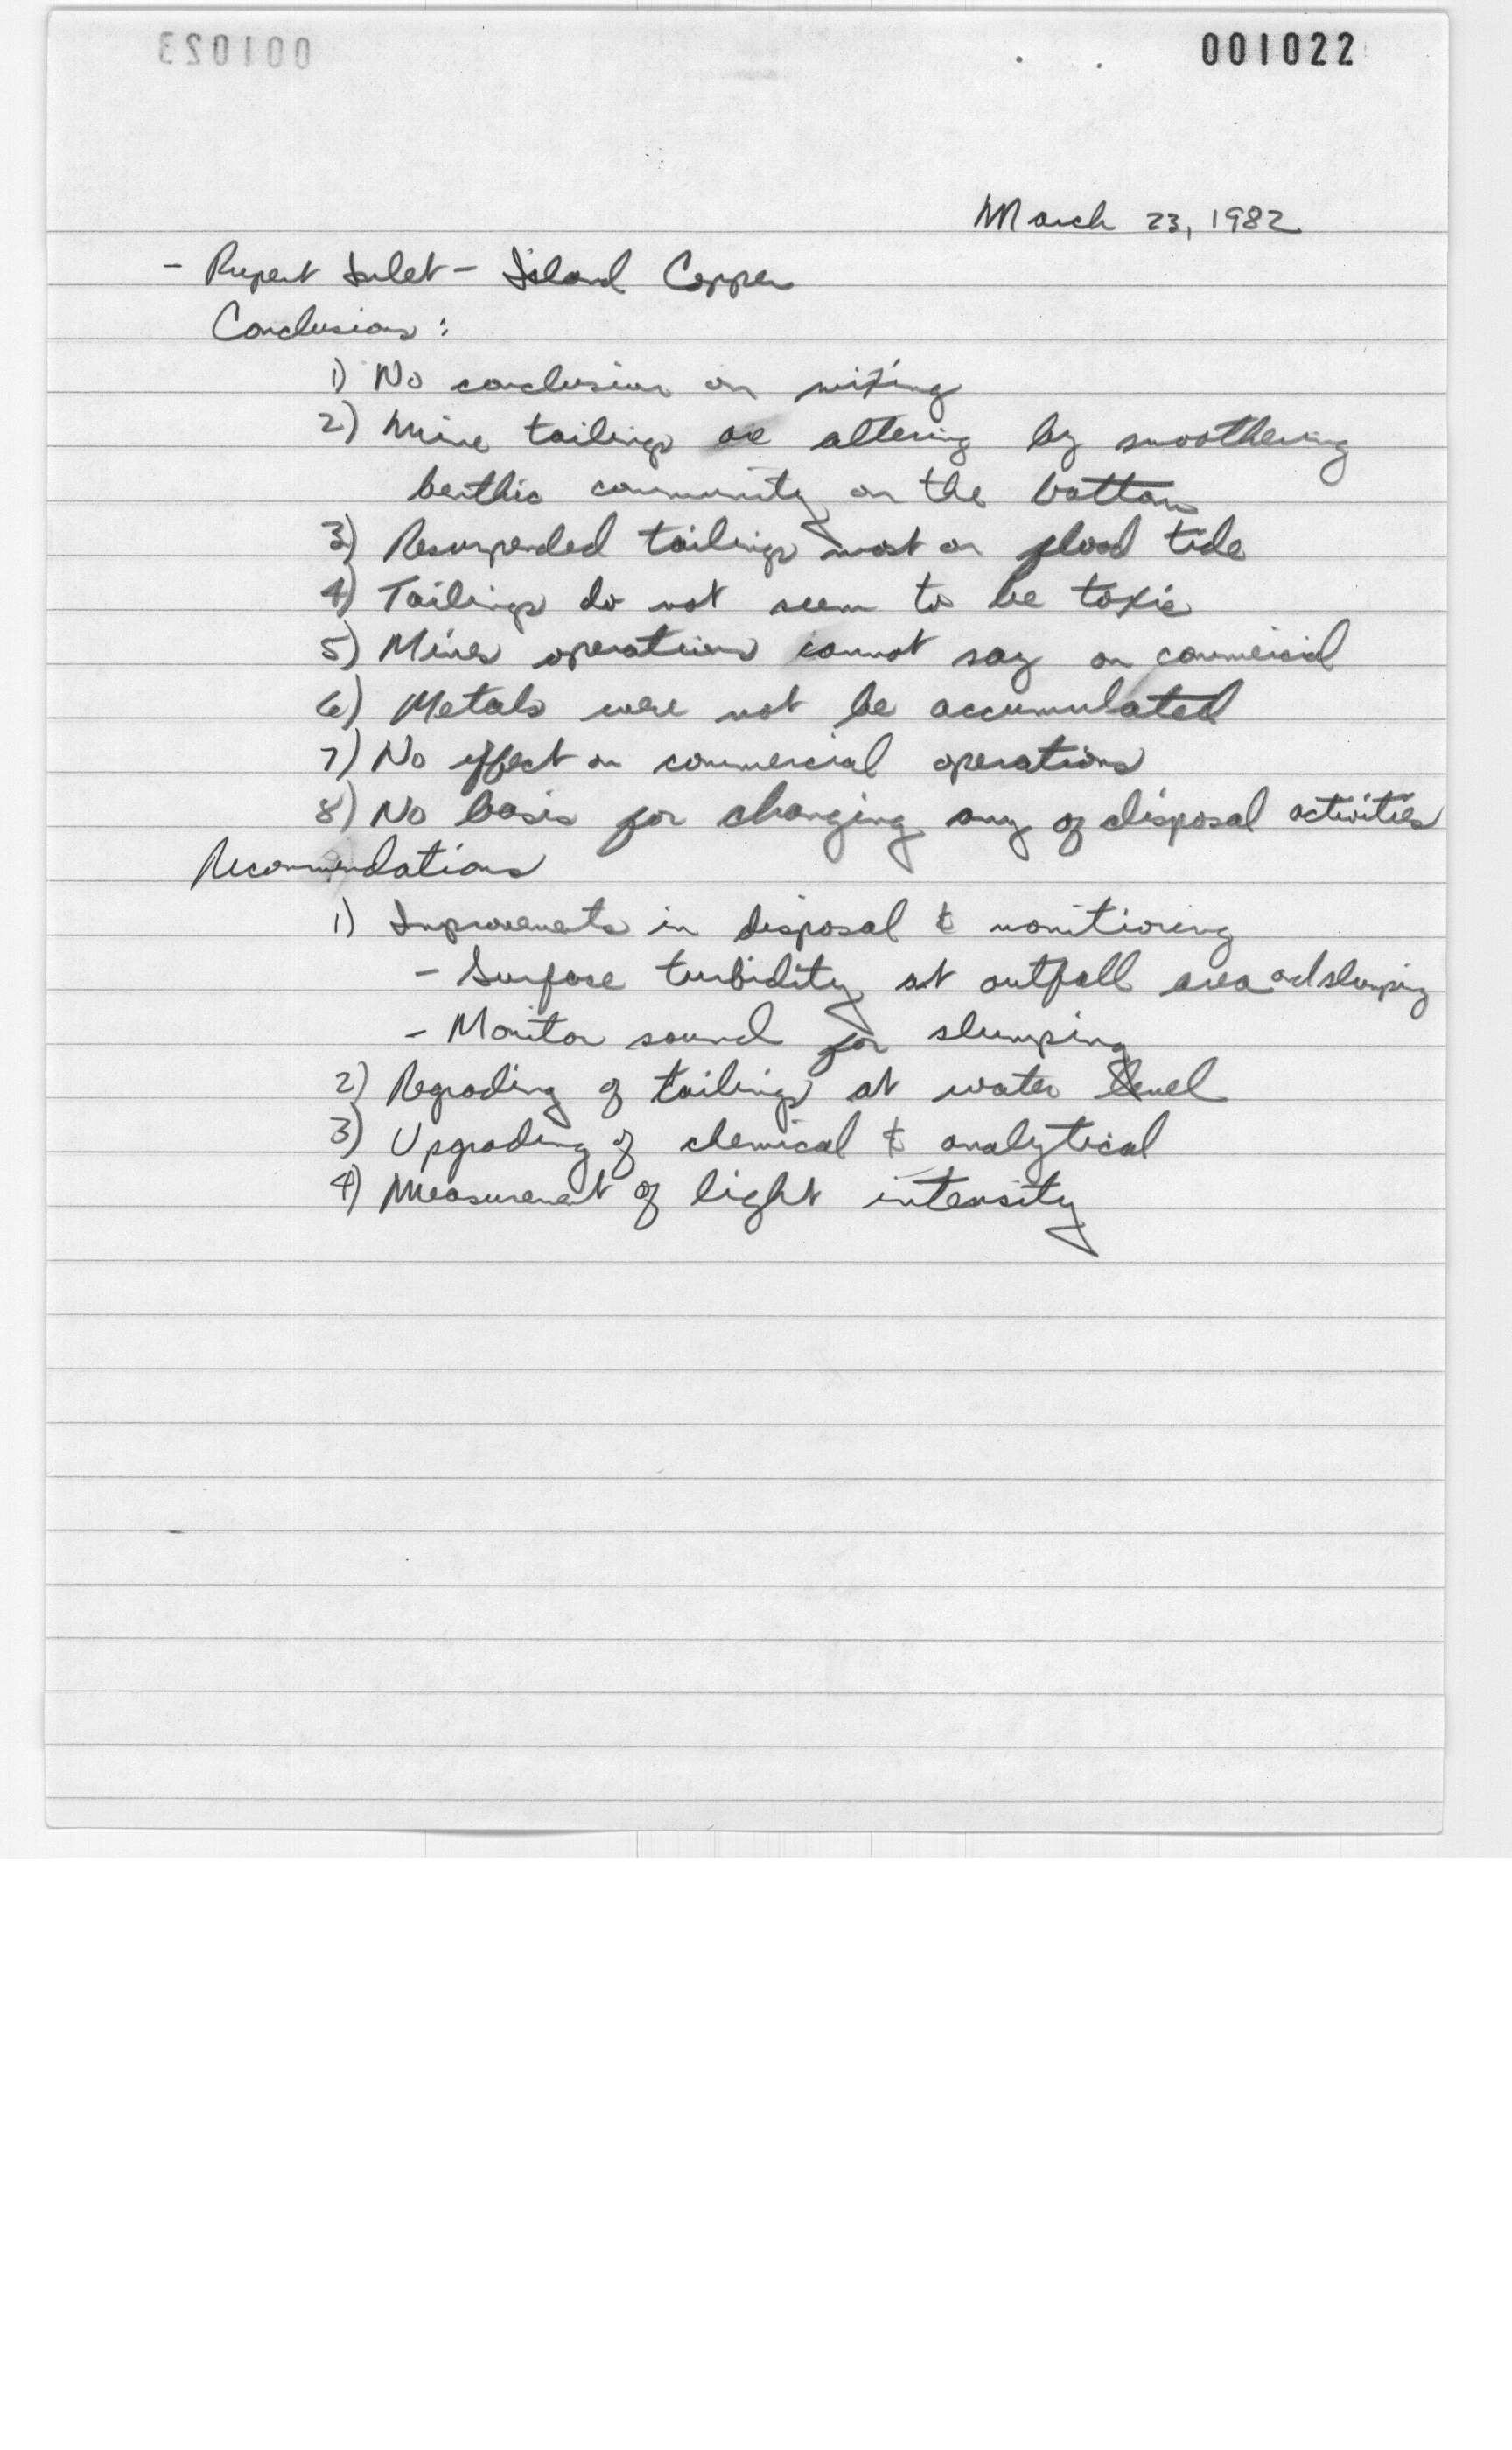 001022
March 23, 1982
- Rupert Inlet - Island Copper
Conclusions:
1) No conclusion on mixing
2) Mine tailings are altering by smoothering
benthic community on the bottom
3) Resuspended tailings most on flood tide
4) Tailings do not seem to be toxic
5) Mines operations cannot say on commercial
6) Metals were not be accumulated
7) No effect on commercial operations
8) No basis for changing any of disposal activities
Recommendations
1) Improvements in disposal & monitioring
- Surface turbidity at outfall area and slumping
- Monitor sound for slumping
2) Regrading of tailings at water level
3) Upgrading of chemical & analytical
4) Measurement of light intensity